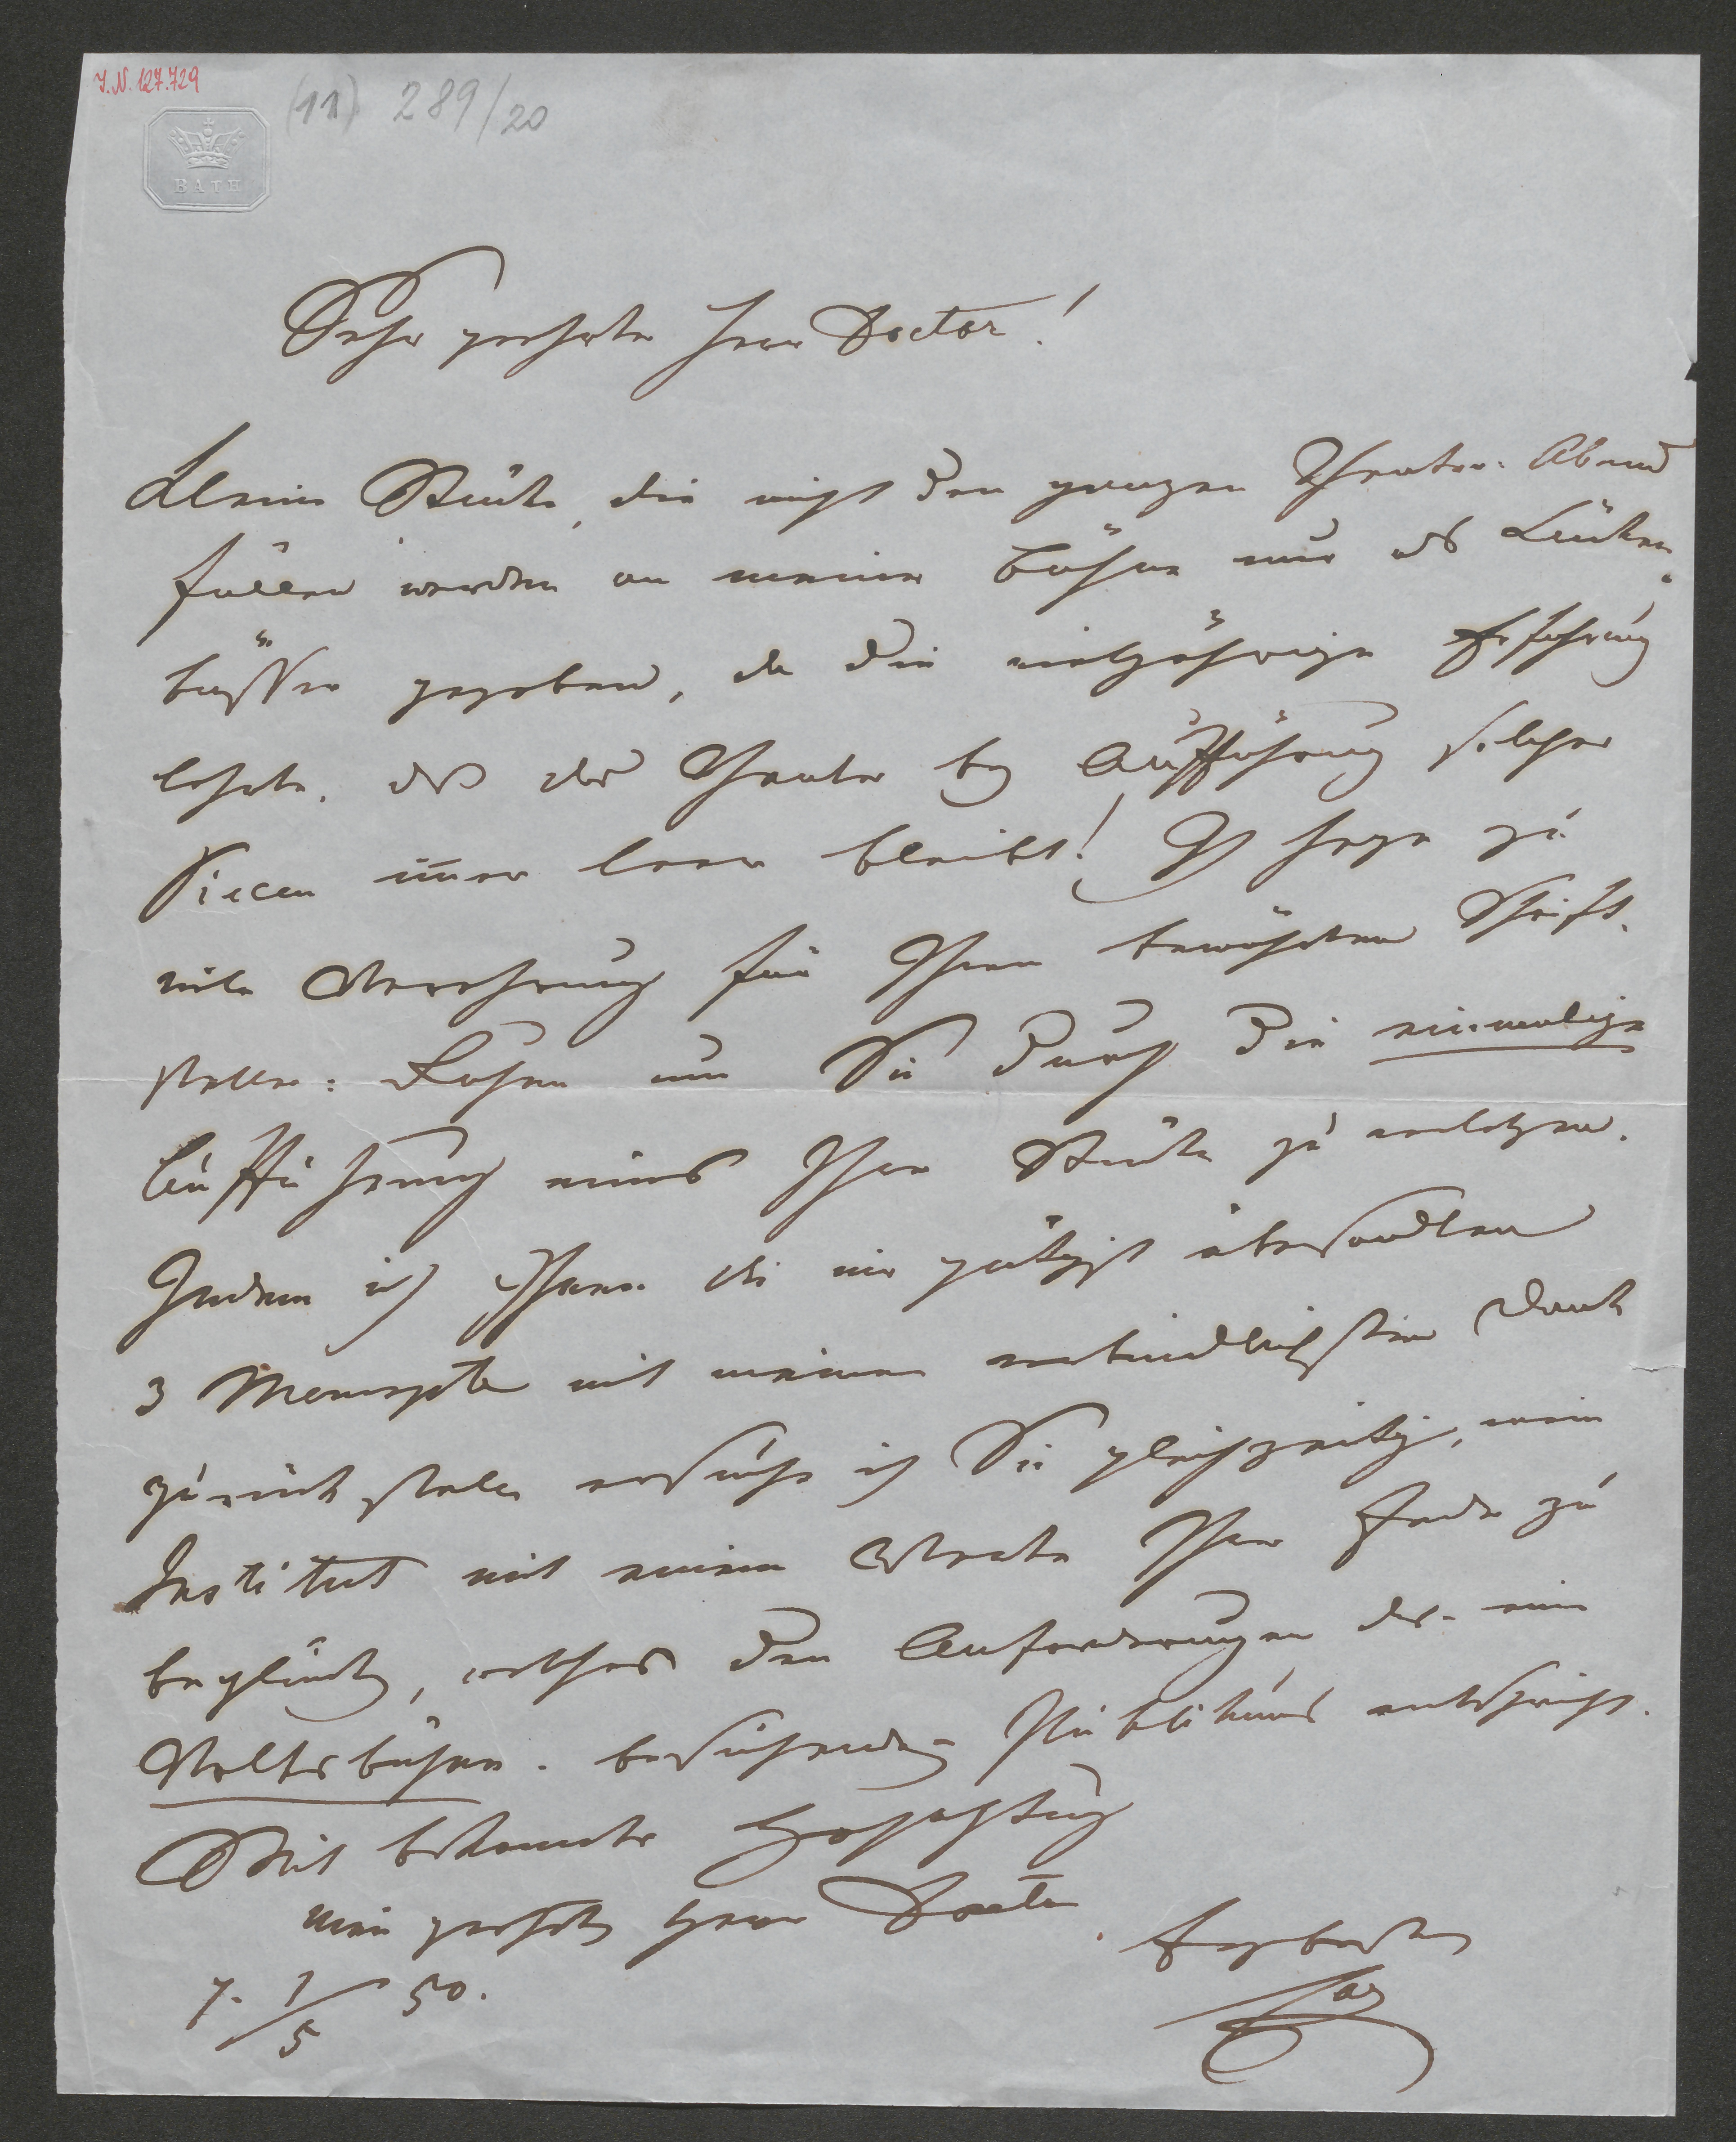 I.N. 127.729
(11) 289/20
BATH
Sehr geehrter Herr Doctor!
Kleine Stücke, die nicht den ganzen Theater-Abend
füllen werden an meiner Bühne nur als Lücken-
büsser gegeben, da die vieljährige Erfahrung
lehrte, daß das Theater bey Aufführung solcher
Piecen im̄er leer bleibt! Ich hege zu
viele Verehrung für Ihren bewährten Schrift-
steller-Ruhm um Sie durch die einmalige
Aufführung eines Ihrer Stücke zu verletzen.
Indem ich Ihnen die mir gütigst übersandten
3 Manuscpte mit meinem verbindlichsten Dank
zurück stelle ersuche ich Sie gleichzeitig, mein
Institut mit einem Werke Ihrer Feder zu
beglücken, welches den Anforderungen des eine
Volksbühne besuchenden Publikums entspricht.
Mit bekannter Hochachtung
mein geehrter Herr Doctor
Ergebenster
7. 1/5 50.